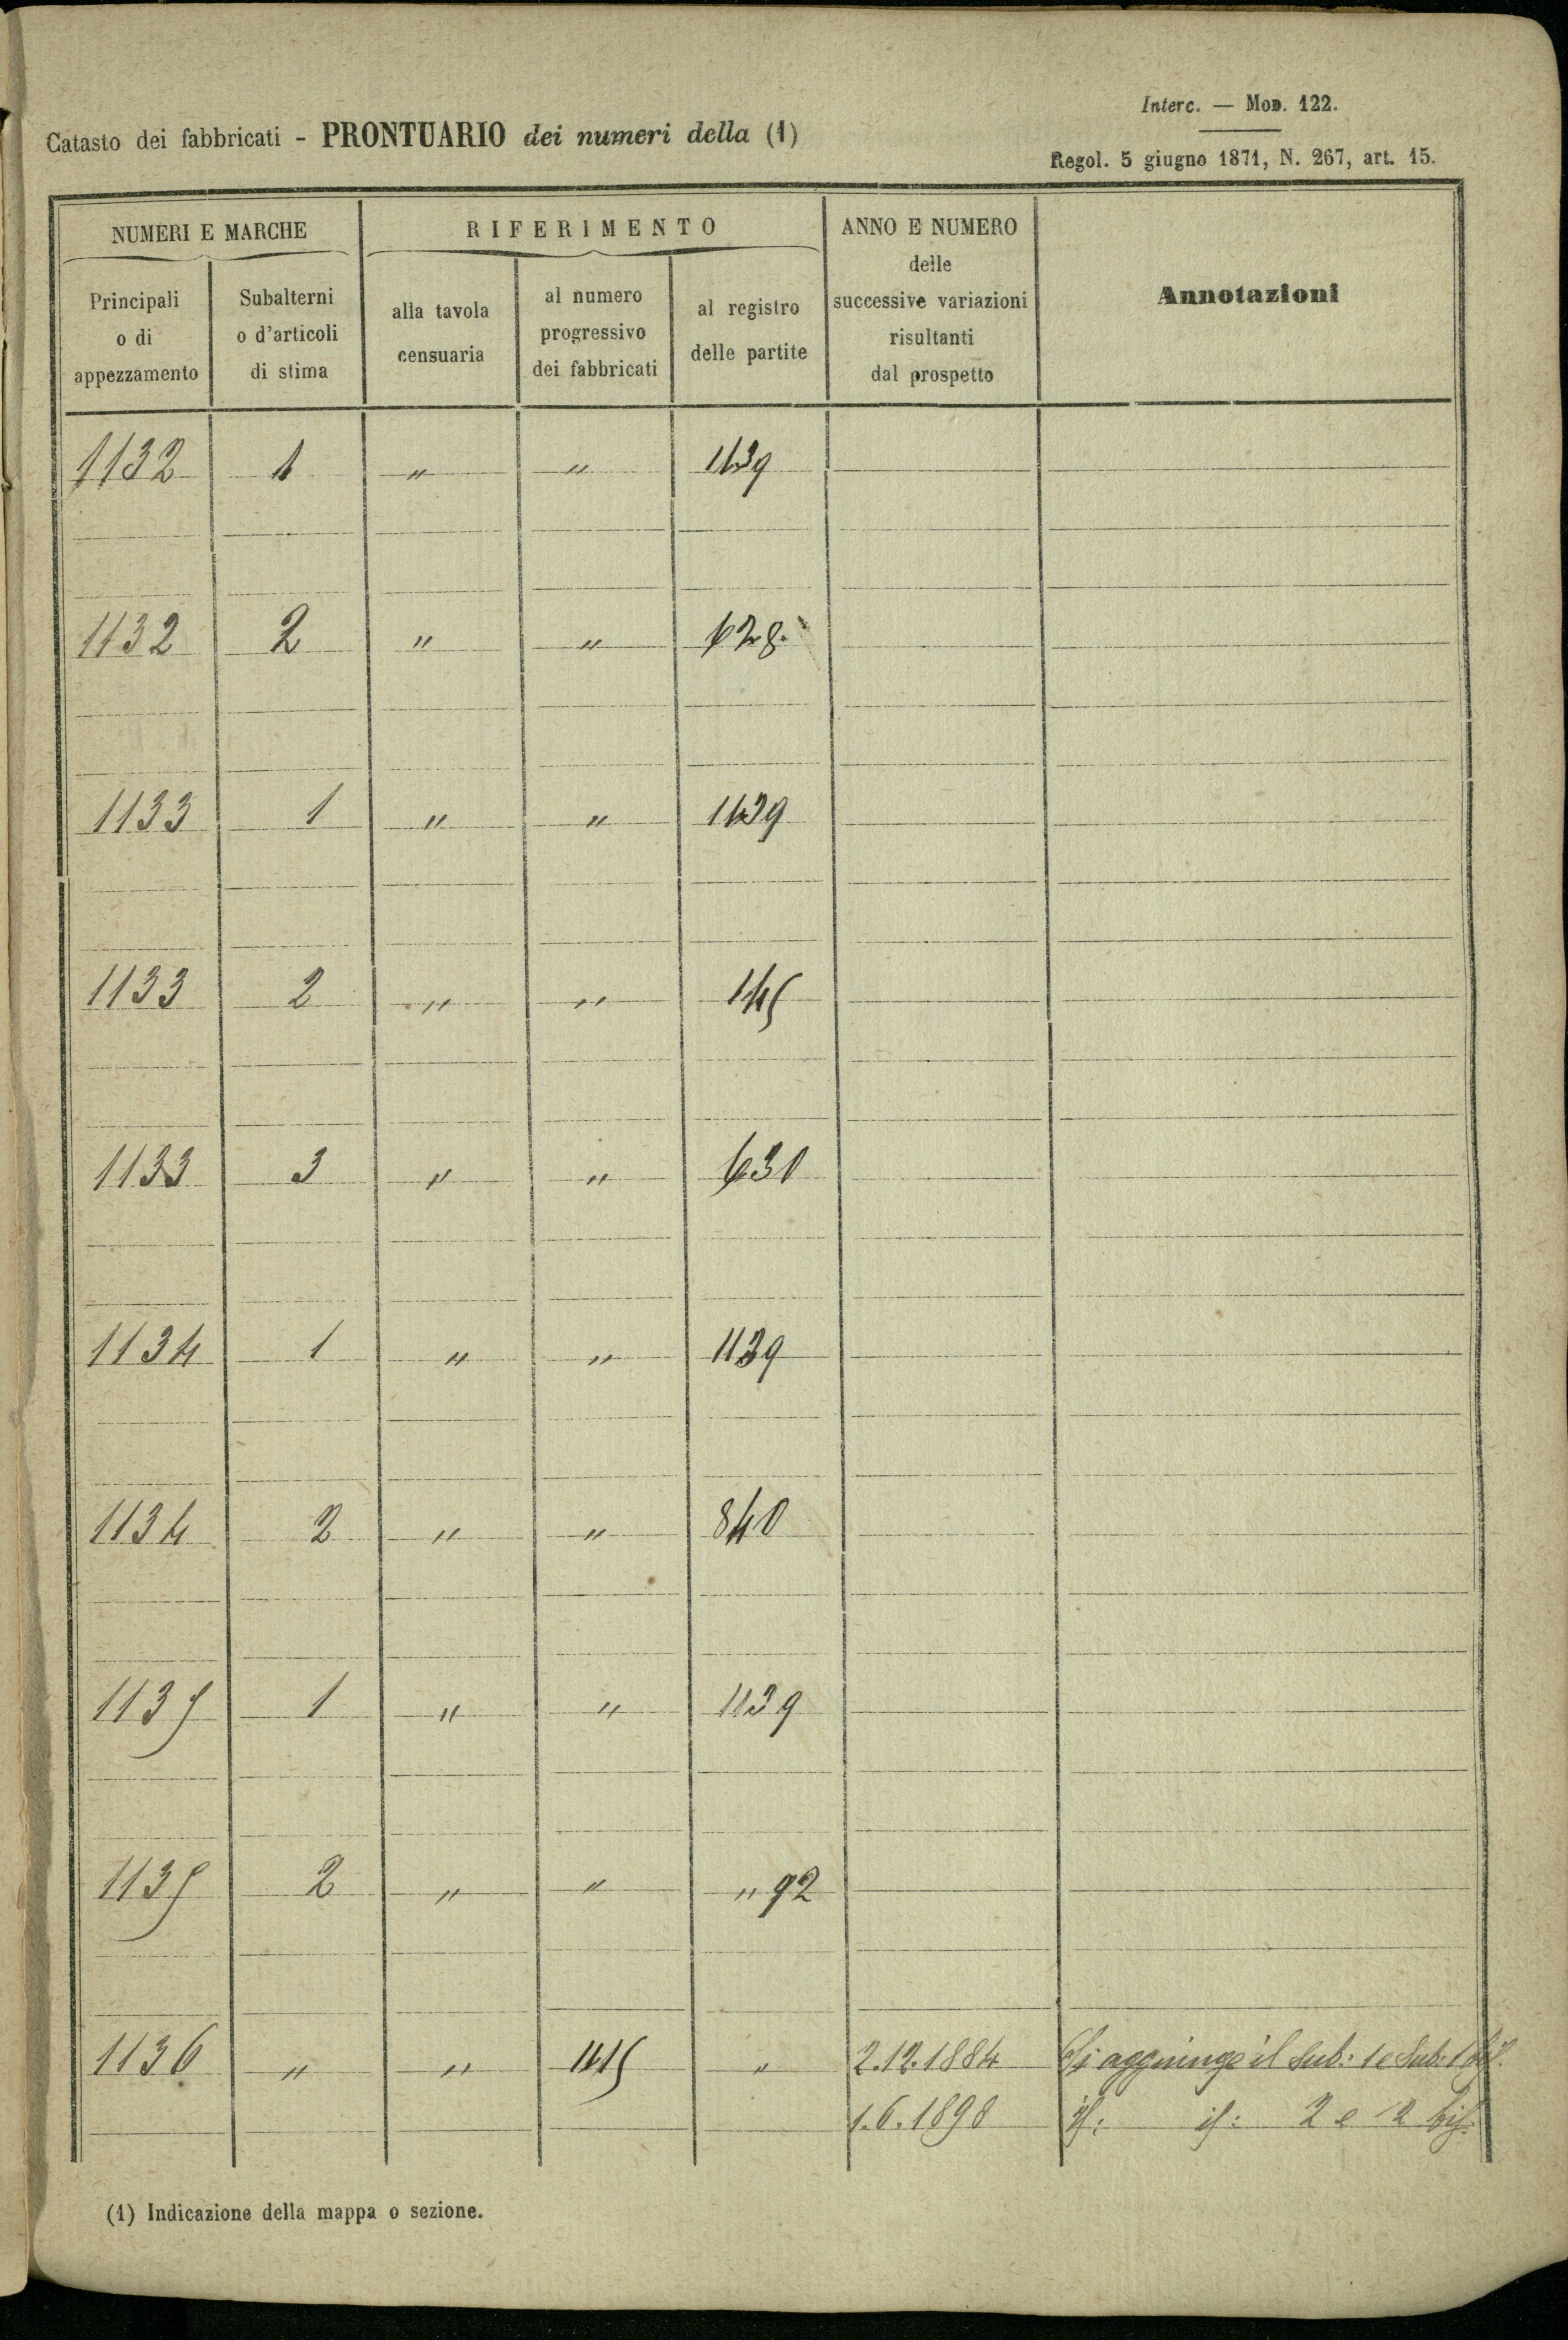 Interc. — Mod. 122.
Catasto dei fabbricati - PRONTUARIO dei numeri della (1)
Regol. 5 giugno 1871, N. 267, art. 15.
NUMERI E MARCHE
RIFERIMENTO
ANNO E NUMERO
delle
successive variazioni
risultanti
dal prospetto
Annotazioni
Principali
o di
appezzamento
Subalterni
o d'articoli
di stima
alla tavola
censuaria
al numero
progressivo
dei fabbricati
al registro
delle partite
1132 1 " " 1139
1132 2 " " 628.
1133 1 " " 1139
1133 2 " " 145
1133 3 " " 630
1134 1 " " 1139
1134 2 " " 840
1135 1 " " 1139
1135 2 " " " 92
1136 " " 1415 " 2.12.1884 Si aggiunge il Sub: 1 e Sub: 1 bis.
1.6.1898 is: is: 2 e 2 bis.
(1) Indicazione della mappa o sezione.